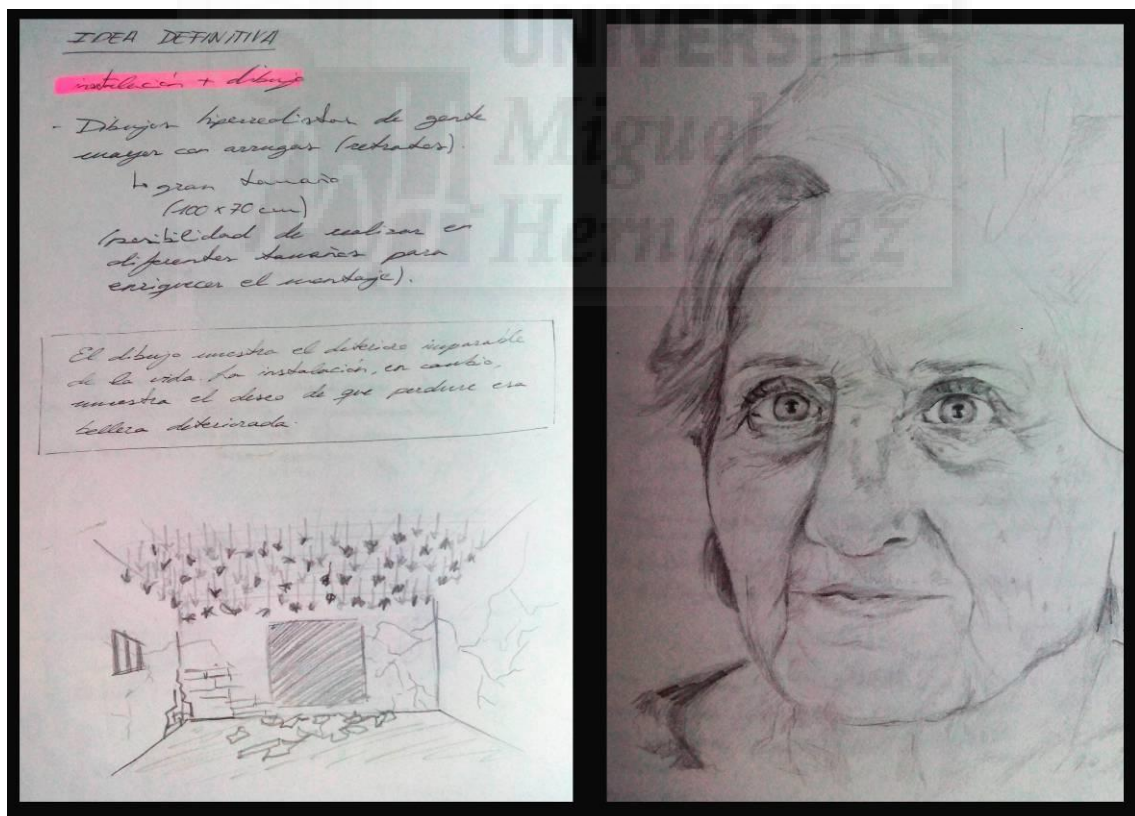 IDEA DEFINITIVA
instalación + dibujo
- Dibujos hiperrealistas de gente
mayor con arrugas (retratos).
↳ gran tamaño
(100 x 70 cm)
(posibilidad de realizar en
diferentes tamaños para
enriquecer el montaje).
El dibujo muestra el deterioro imparable
de la vida. La instalación, en cambio,
muestra el deseo de que perdure esa
belleza deteriorada.
UNIVERSITAS
Miguel
Hernández